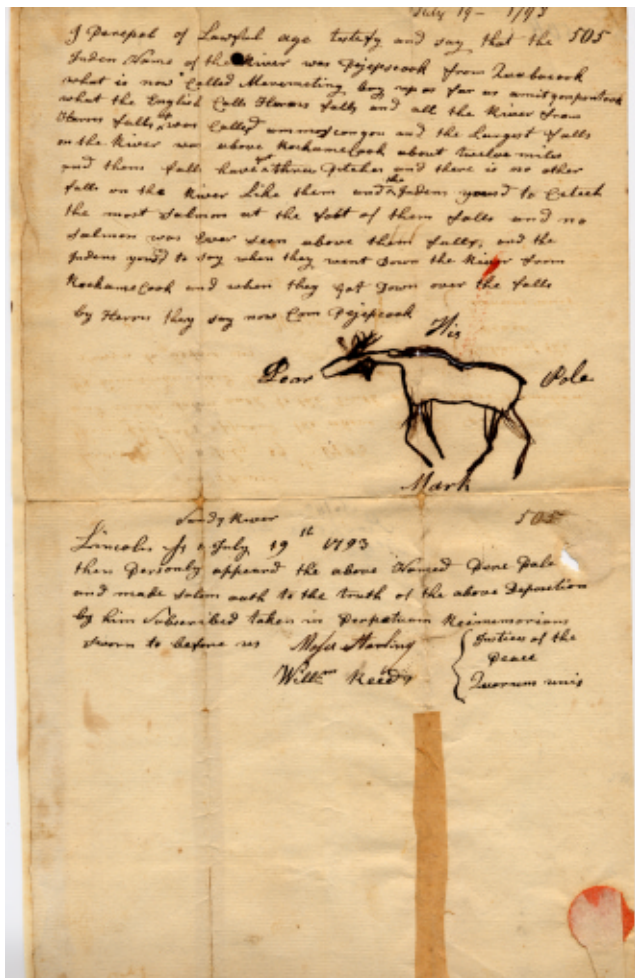 July 19 - 1793
I Perepol of Lawful age testify and say that the 505
Inden Name of the River was Pejepscook from Quabacook
what is now Called Maremeeting bay up as far as amitgonpontook
what the English Calls Harriss falls and all the River from
Harriss falls up was Called ammoscongou and the Largest falls
on the River was above Rockamecook about twelve miles
and them falls have got three Pitches and there is no other
falls on the River Like them and the Indens yousd to Catch
the most Salmon at the foot of them falls and no
Salmon was Ever seen above them falls, and the
Indens yousd to say when they went Down the River from
Rockamecook and when they got Down over the falls
by Harriss they say now Com Pejepscook
His
Pear Pole
Mark
Sandy River 505
Lincoln Ss July 19th 1793
then Personly appeared the above Named Pere Pole
and made Solem oath to the truth of the above Deposition
by him Subscribed taken in Perpetuam Reimemoriam
Sworn to before us Moses Starling Justices of the
Peace
Willm Reed Quorum unis